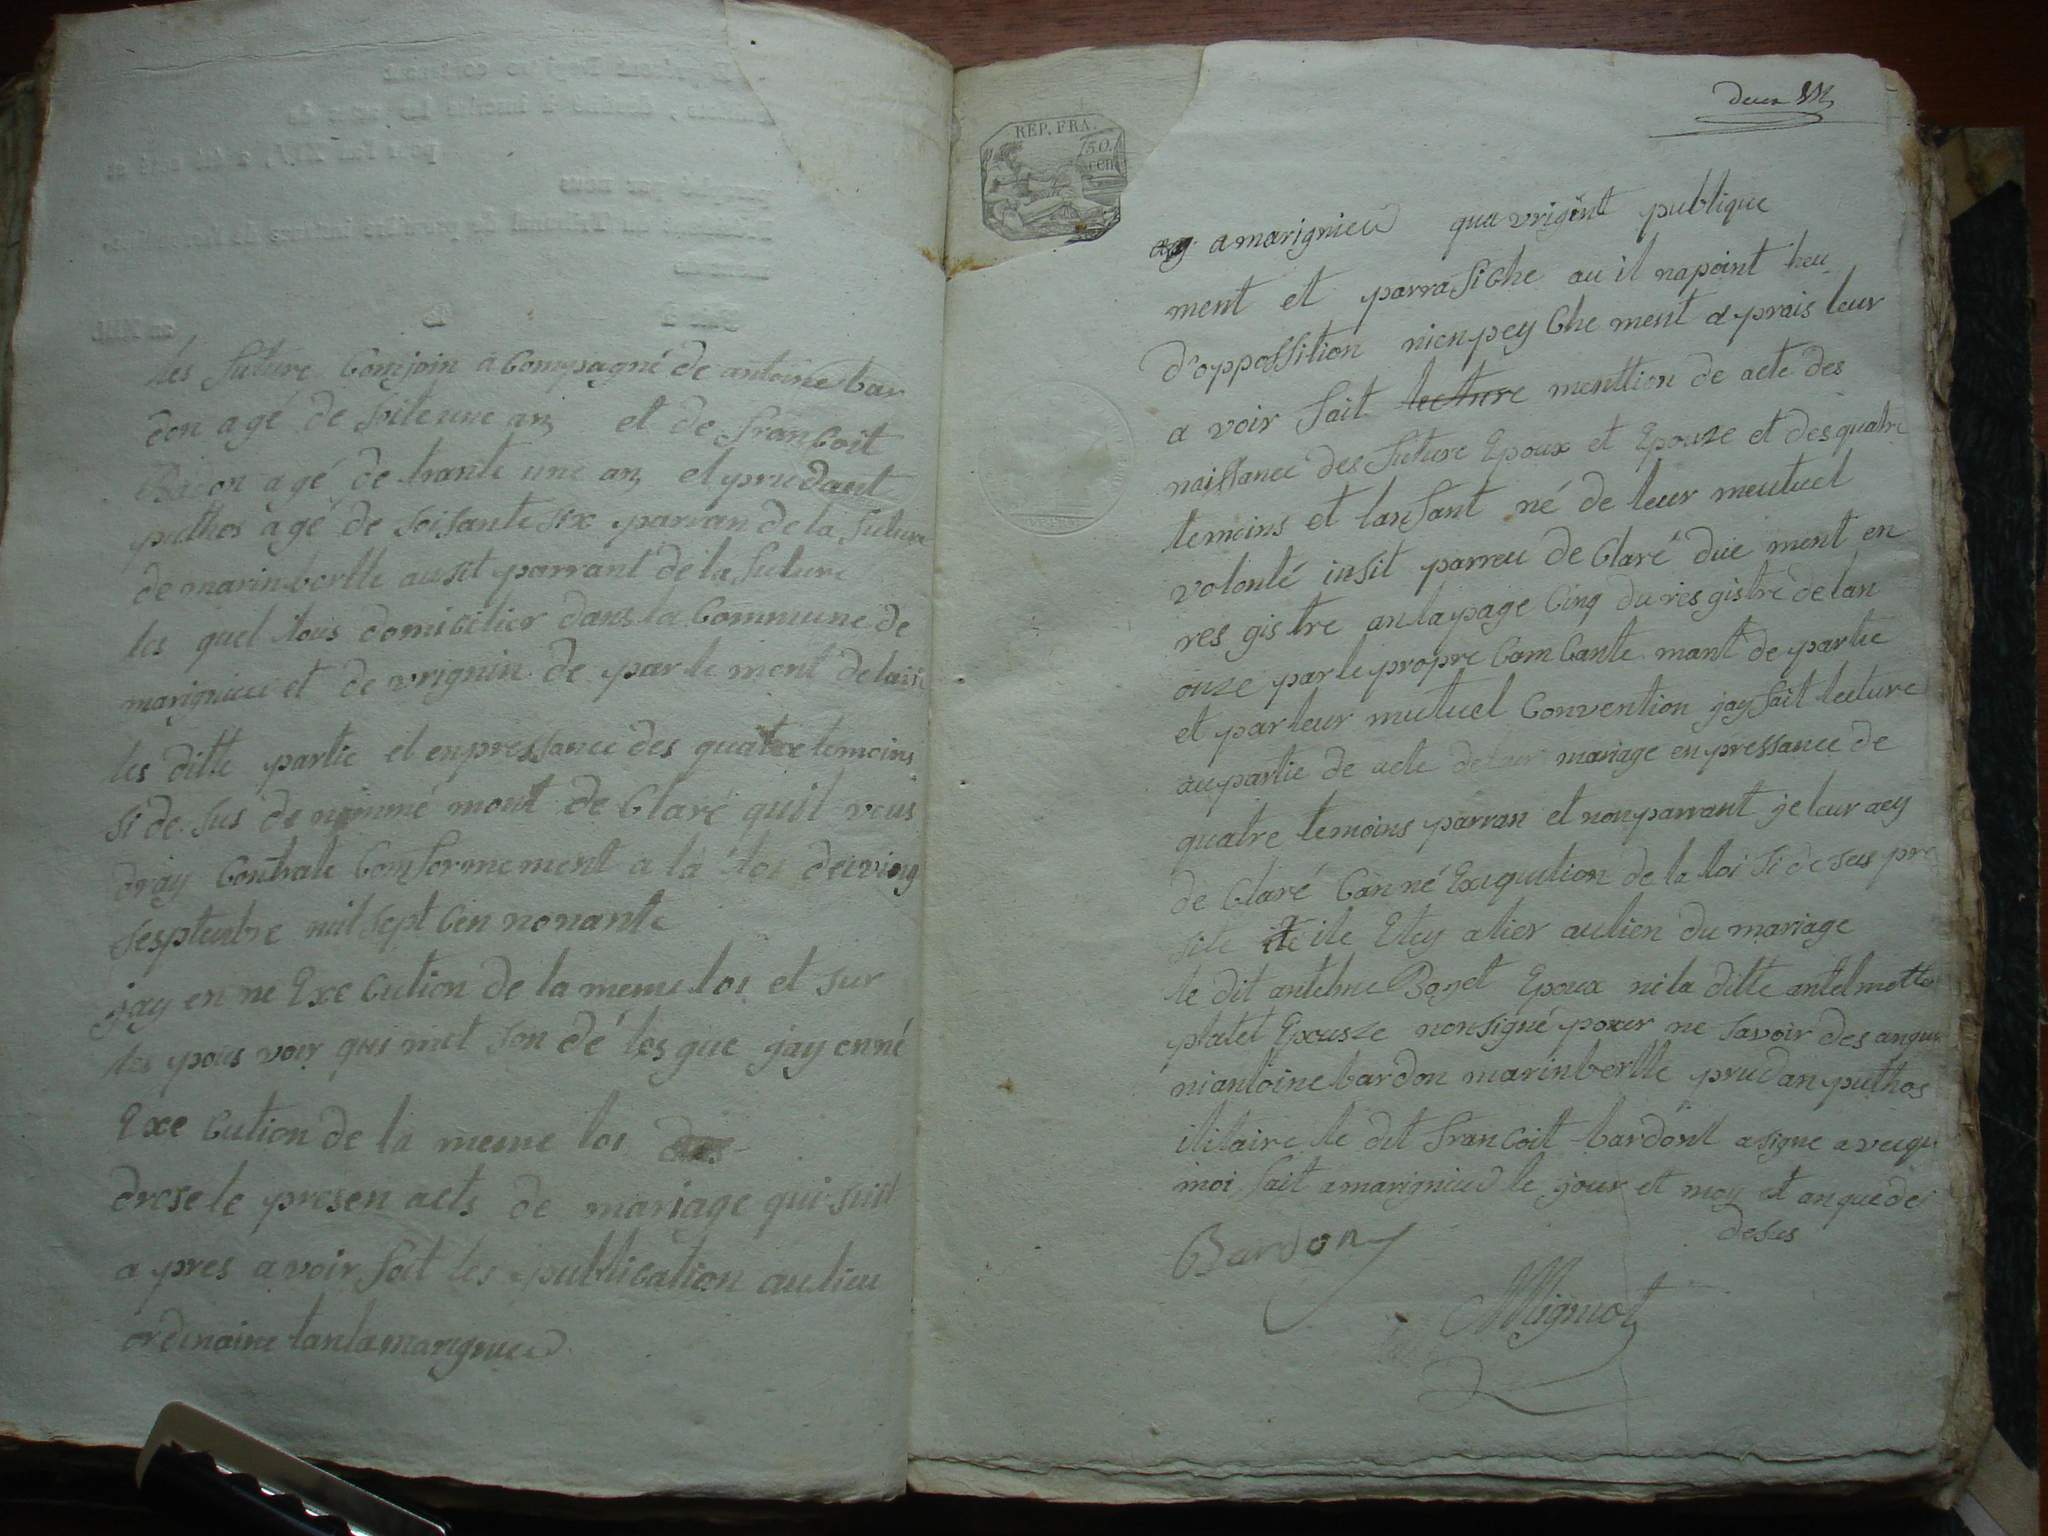 les future Conjoin a Compagné de antoine bar
don agé de soite une an et de francoit
Badon agé de trante une an et prudant
puthos agé de soisante six parran de la future
de marin bertte ausit parrant de la future
les quel tous domicilier dans la Commune de
marignieu et de vrignin de par le ment de lain
les ditte partie et en pressance des quatre temoins
si de sus de nommé mont de Claré quil vous
dray Contrate Conformement a la loi de vving
sesptenbre mil sept Cen nonante
jay en ne Exe Cution de la meme loi et sur
les pous voir qui met son dé les gue jay en né
Exe Cution de la meme loi
drese le presen acts de mariage qui suit
a pres avoir fait les publication au lieu
ordinaire tanta marignieu
REP. FRA.
50.
cen
deux
a marignieu qua vrignint publique
ment et par rafiche au il na point heu
d'oppossition nienpey Che ment a prais leur
a voir fait lecture menttion de acte des
naissance des future Epoux et Epouze et des quatre
temoins et lanfant né de leur meutuel
volonté insit parreu de Claré due ment en
res gistre an la page Cinq du res gistre de lan
onze par le propre Com Cante mant de partie
et par leur mutuel Convention jay fait lecture
au partie de acte de leur mariage en pressance de
quatre temoins parran et non parrant je leur aey
de Claré Can né Exequition de la loi si de sus pre
site ile Etey alier au lien du mariage
le dit antelme Bonet Epoux ni la ditte antelmette
platet Epousze non signé pour ne savoir des anque
ni antoine bardon marin bertte prudan puthos
ilitaire le dit francoit bardont a signe a vecque
moi fait a marignieu le jour et moy et an que de
desus
Bardon
Mignot